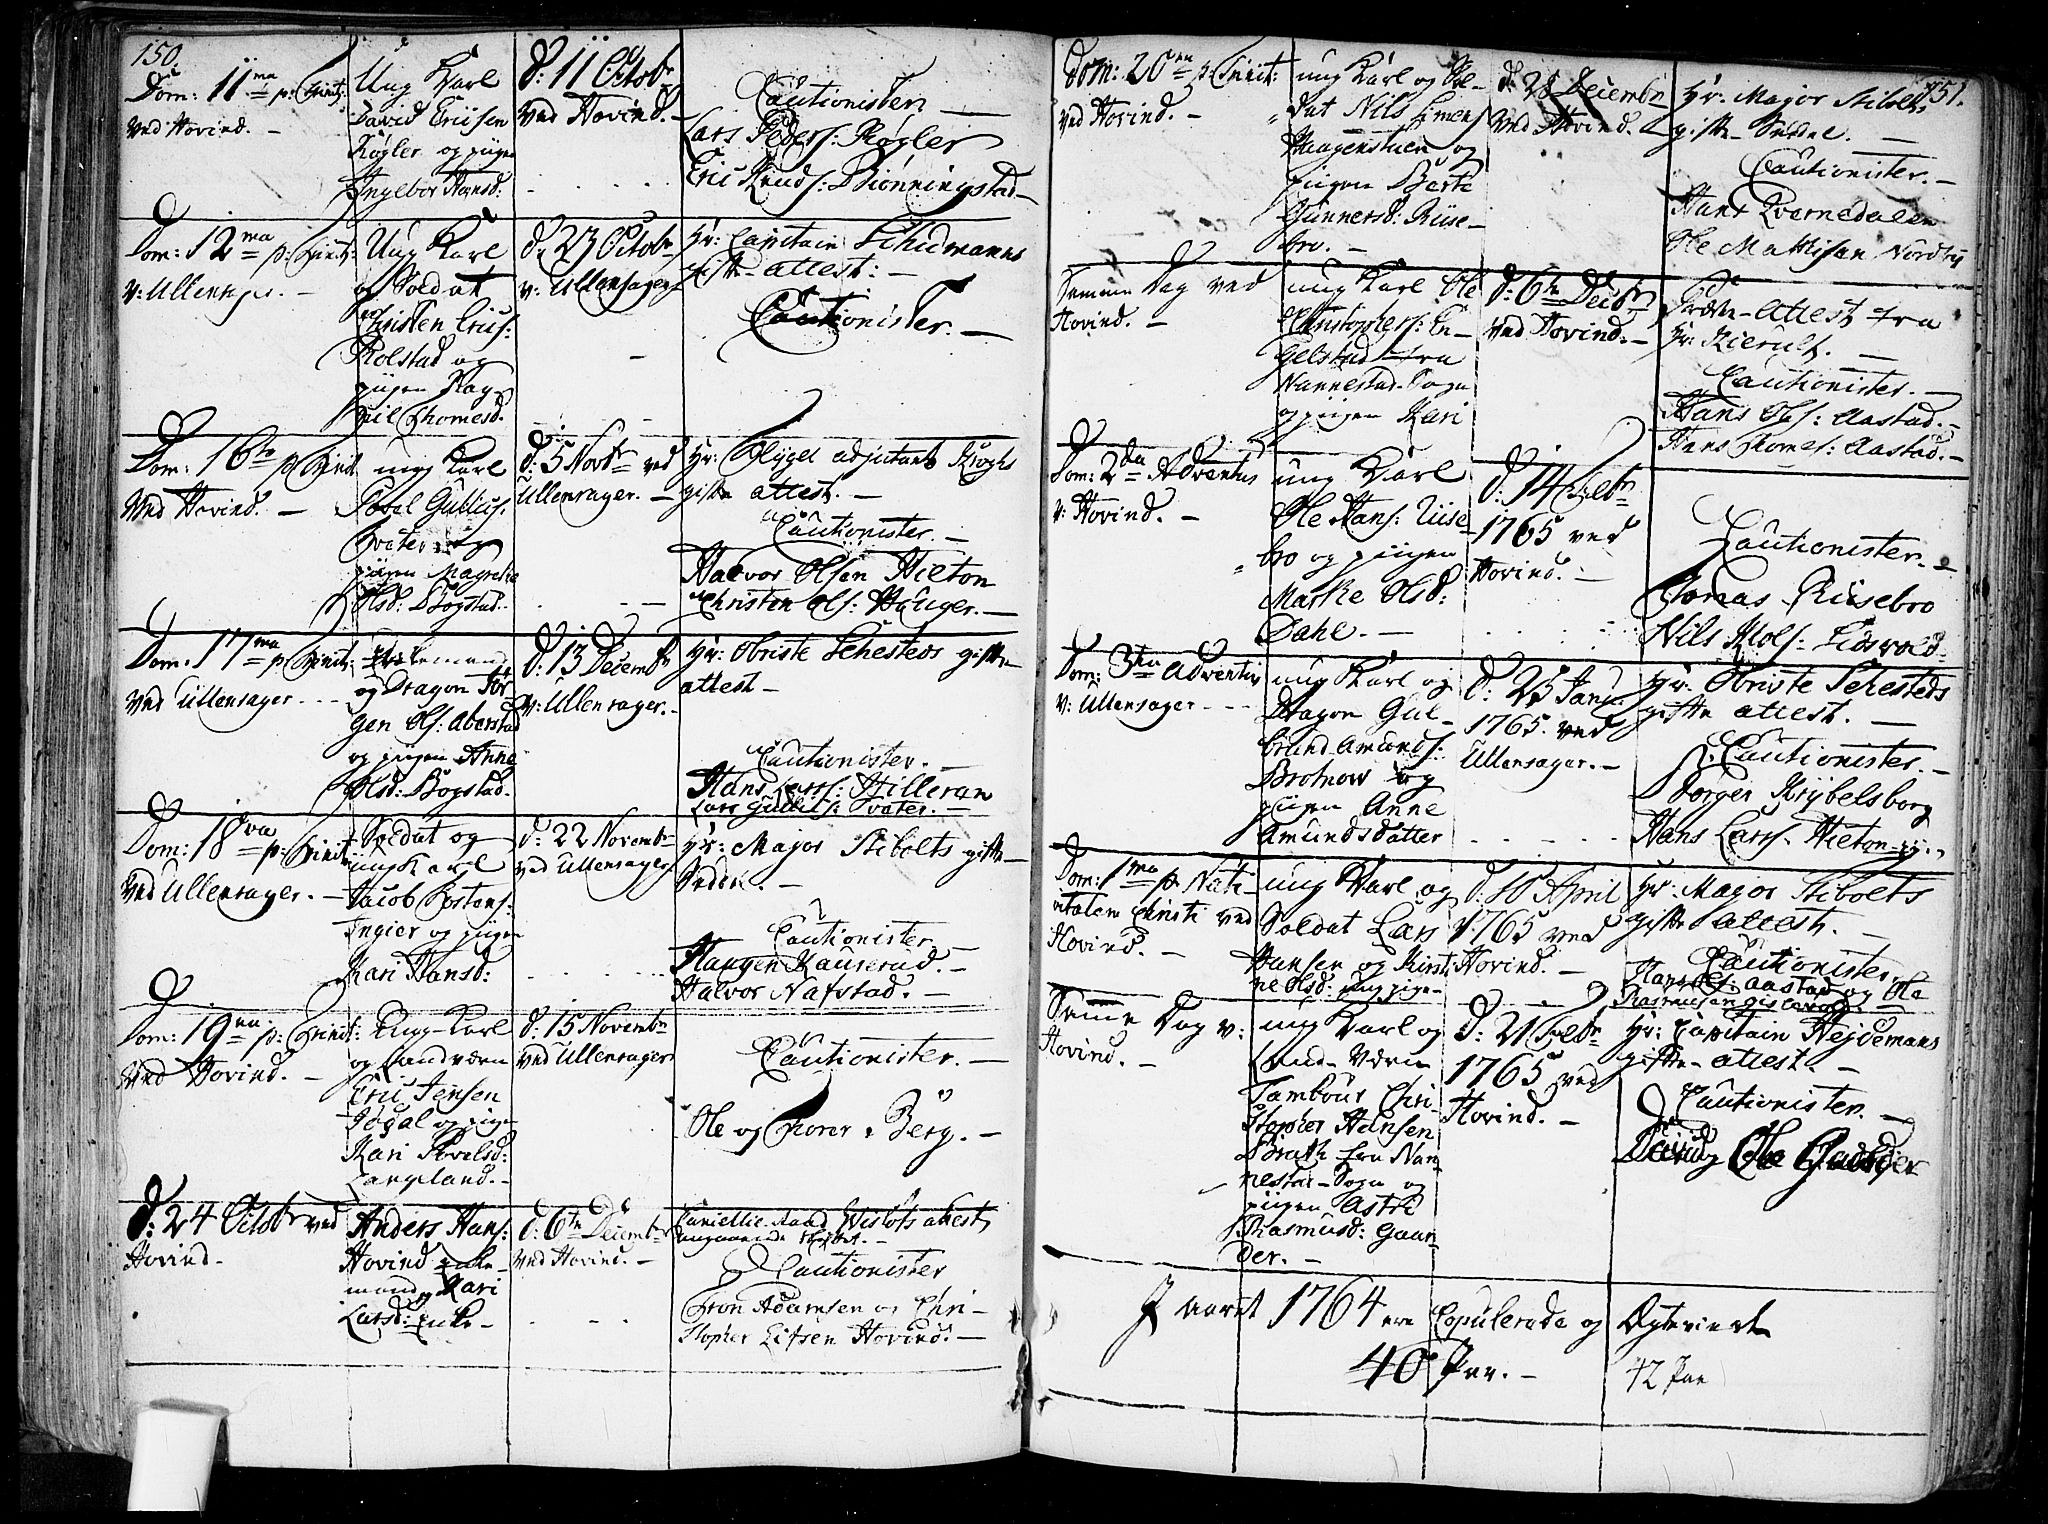 150.
Dom: 11ma p: Trinit:
ved Hovind. —
Ung Karl
David Eriisen
Røgler og piigen
Ingebor Hansd:
d: 11 Octobr
ved Hovind. —
Cautionister —
Lars Peders: Røgler
Eric Knuds: Biønningstad —
Dom: 12ma p: Trinit:
v: Ullensager. —
Ung Karl
og Soldat
Christen Eriis:
Rolstad og
piigen Rag-
nil Thomesd.
d: 23 Octobr
v: Ullensager
Hr: Capitain Schidmanns
gifte attest: —
Cautionister. —
Dom: 16de p Trinit:
ved Hovind. —
ung Karl
Povel Gullics:
Tvater og
piigen Magrethe
Olsd: Bogstad.
d: 5 Novbr ved
Ullensager. —
Hr: Flygel adjutant Kroghs
gifte attest. —
Cautionister. —
Halvor Olsen Hilton
Christen Ols: Hauger. —
Dom: 17ma p Trinit:
ved Ullensager
Enkemand
og Dragon Jör
gen Ols: Aberstad
og piigen Anne
Olsd: Bogstad.
d: 13 Decembr
v: Ullensager. —
Hr: Obriste Schesteds gifte
attest —
Cautionister. —
Hans Larss: Hilleran
Lars Gullics: Tvater. —
Dom: 18va p: Trinit:
ved Ullensager. —
Soldat og
ung Karl
Jacob Tostens:
Ingier og piigen
Kari Hansd:
d: 22 Novembr
ved Ullensager
Hr: Major Stibolts gifte
Seddel. —
Cautionister. —
Haagen Kauserud. —
Halvor Nafstad. —
Dom: 19na p: Trinit:
ved Hovind. —
Ung Karl
og Landværn
Eric Jensen
Jødal og piigen
Kari Povelsd:
Langeland. —
d: 15 Novembr
ved Ullensager
Cautionister. —
Ole og Thorer Berg. —
d: 24 Octobr ved
Hovind.
Anders Hans:
Hovind enke-
mand og Kari
Larsd: enke —
d: 6te Decembr
ved Hovind. —
attest
Cautionister
Tron Adamsen og Chri-
stopher Eifsen Hovind. —
151.
Dom: 20de p Trinit:
ved Hovind. —
ung Karl og Sol-
dat Nils Simens
Haagenstuen og
piigen Berte
Gunnersd: Riise-
bro. —
d: 28 Decembr
ved Hovind.
Hr: Major Stibolts
gifte Seddel. —
Cautionister. —
Hans Qvernedalen
Ole Mathisen Nordby
Samme Dag ved
Hovind. —
ung Karl Ole
Christophers: En-
gelstad fra
Nannestad Sogn
og piigen Kari
d: 6te Decbr
ved Hovind. —
attest fra
Hr: Kierult. —
Cautionister. —
Hans Ols: Aastad. —
Hans Thomes: Aastad. —
Dom: 2da Adventus
v: Hovind. —
ung Karl
Ole Hans: Riise-
bro og piigen
Marthe Olsd:
Dahl. —
d: 14 Febr
1765 ved
Hovind. —
Cautionister. —
Jonas Riisebro
Nils Kiols: Eidsvold
Dom: 3tia Adventus
v: Ullensager
ung Karl og
Dragon Gul-
brand Amunds:
Brotnow og
piigen Anne
Amundsdatter
d: 25 Janu:
1765. ved
Ullensager. —
Hr: Obriste Schesteds
gifte attest. —
Cautionister. —
Jørgen Krybelsborg
Hans Larss: Hilton
Dom: 1ma p: Nati-
vitatem Christi ved
Hovind. —
ung Karl og
Soldat Lars
Hansen og Kirsti-
ne Olsd: ung pige
d: 18 April
1765 ved
Hovind. —
Hr: Major Stibolts
gifte attest. —
Cautionister.
Hans Ols: Aastad og Ole
Rasmusen Gislevold. —
Samme Dag v:
Hovind. —
ung Karl og
Land-Værn
Tambour Chri-
stopher Hansen
Brath fra Nan-
nestad Sogn og
piigen Astri
Rasmusd: Gaar-
der. —
d: 21 Febr
1765 ved
Hovind. —
Hr: Capitain Hejdemans
gifte attest. —
Cautionister. —
David og Ole Gaarder
I aaret 1764 ere Copulerede og Ægteviede
40 Par. — 42 Par